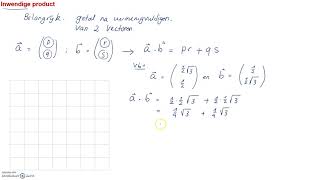 Inwendige product
Belangrijk. getal na vermenigvuldigen.
van 2 vectoren
a⃗ = (p q) ; b⃗ = (r s) → a⃗ · b⃗ = pr + qs
Vb:
a⃗ = (½ ½√3) en b⃗ = (½√3 ½)
a⃗ · b⃗ = ½ · ½√3 + ½ · ½√3
= ¼√3 + ¼√3
=